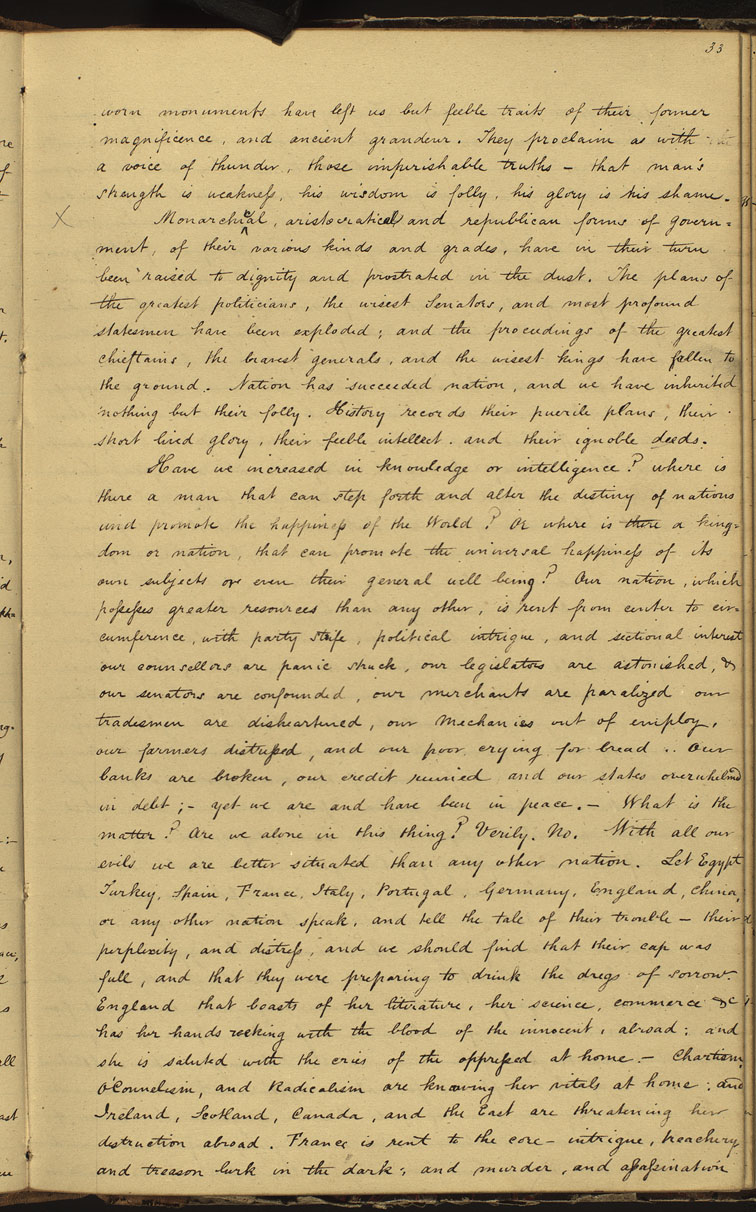 33
worn monuments have left us but feeble traits of their former
magnificence, and ancient grandeur. They proclaim as with
a voice of thunder, those imperishable truths – that man's
strength is weakness, his wisdom is folly, his glory is his shame.
X Monarchial, aristocratical and republican forms of govern=
ment, of their various kinds and grades, have in their turn
been raised to dignity and prostrated in the dust. The plans of
the greatest politicians, the wisest Senators, and most profound
statesmen have been exploded; and the proceedings of the greatest
chieftains, the bravest generals, and the wisest kings have fallen to
the ground. Nation has succeeded nation, and we have inherited
nothing but their folly. History records their puerile plans, their
short lived glory, their feeble intellect. and their ignoble deeds.
Have we increased in knowledge or intelligence? where is
there a man that can step forth and alter the destiny of nations
and promote the happiness of the World? Or where is there a king=
dom or nation, that can promote the universal happiness of its
own subjects or even their general well being? Our nation, which
possesses greater resources than any other, is rent from center to cir=
cumference, with party strife, political intrigue, and sectional interest
our counsellors are panic struck, our legislators are astonished, &
our senators are confounded, our merchants are paralized our
tradesmen are disheartened, our Mechanics out of employ,
our farmers distressed, and our poor crying for bread .. Our
banks are broken, our credit ruined and our states overwhelmed
in debt; – yet we are and have been in peace. – What is the
matter? Are we alone in this thing? Verily. No. With all our
evils we are better situated than any other nation. Let Egypt
Turkey, Spain, France, Italy, Portugal, Germany, England, China,
or any other nation speak, and tell the tale of their trouble – their
perplexity, and distress, and we should find that their cup was
full, and that they were preparing to drink the dregs of sorrow.
England that boasts of her literature, her science, commerce &c
has her hands reeking with the blood of the innocent, abroad; and
she is saluted with the cries of the oppressed at home. – Chartism,
O'Connelism, and Radicalism are knawing her vitals at home; and
Ireland, Scotland, Canada, and the East are threatening her
dstruction abroad. France is rent to the core – intrigue, treachery
and treason lurk in the dark; and murder, and assassination